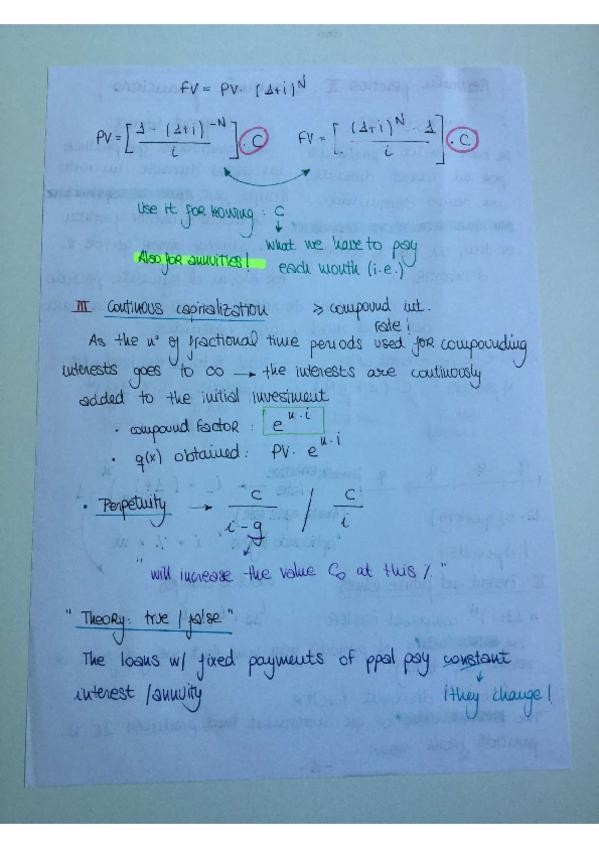 FV = PV · (1+i)^N
PV = [ 1 - (1+i)^-N / i ] · C    FV = [ (1+i)^N - 1 / i ] · C
Use it for knowing : C
↓
what we have to pay
Also for annuities! each month (i.e.)
III Continous capitalization > compound int.
rate!
As the nº of fractional time periods used for compounding
interests goes to ∞ → the interests are continously
added to the initial investment
· compound factor : e^n·i
· q(x) obtained : PV · e^n·i
· Perpetuity → C / i - g / C / i
" will increase the value C0 at this %. "
" Theory: true / false "
The loans w/ fixed payments of ppal pay constant
↓
interest / annuity ¡they change!